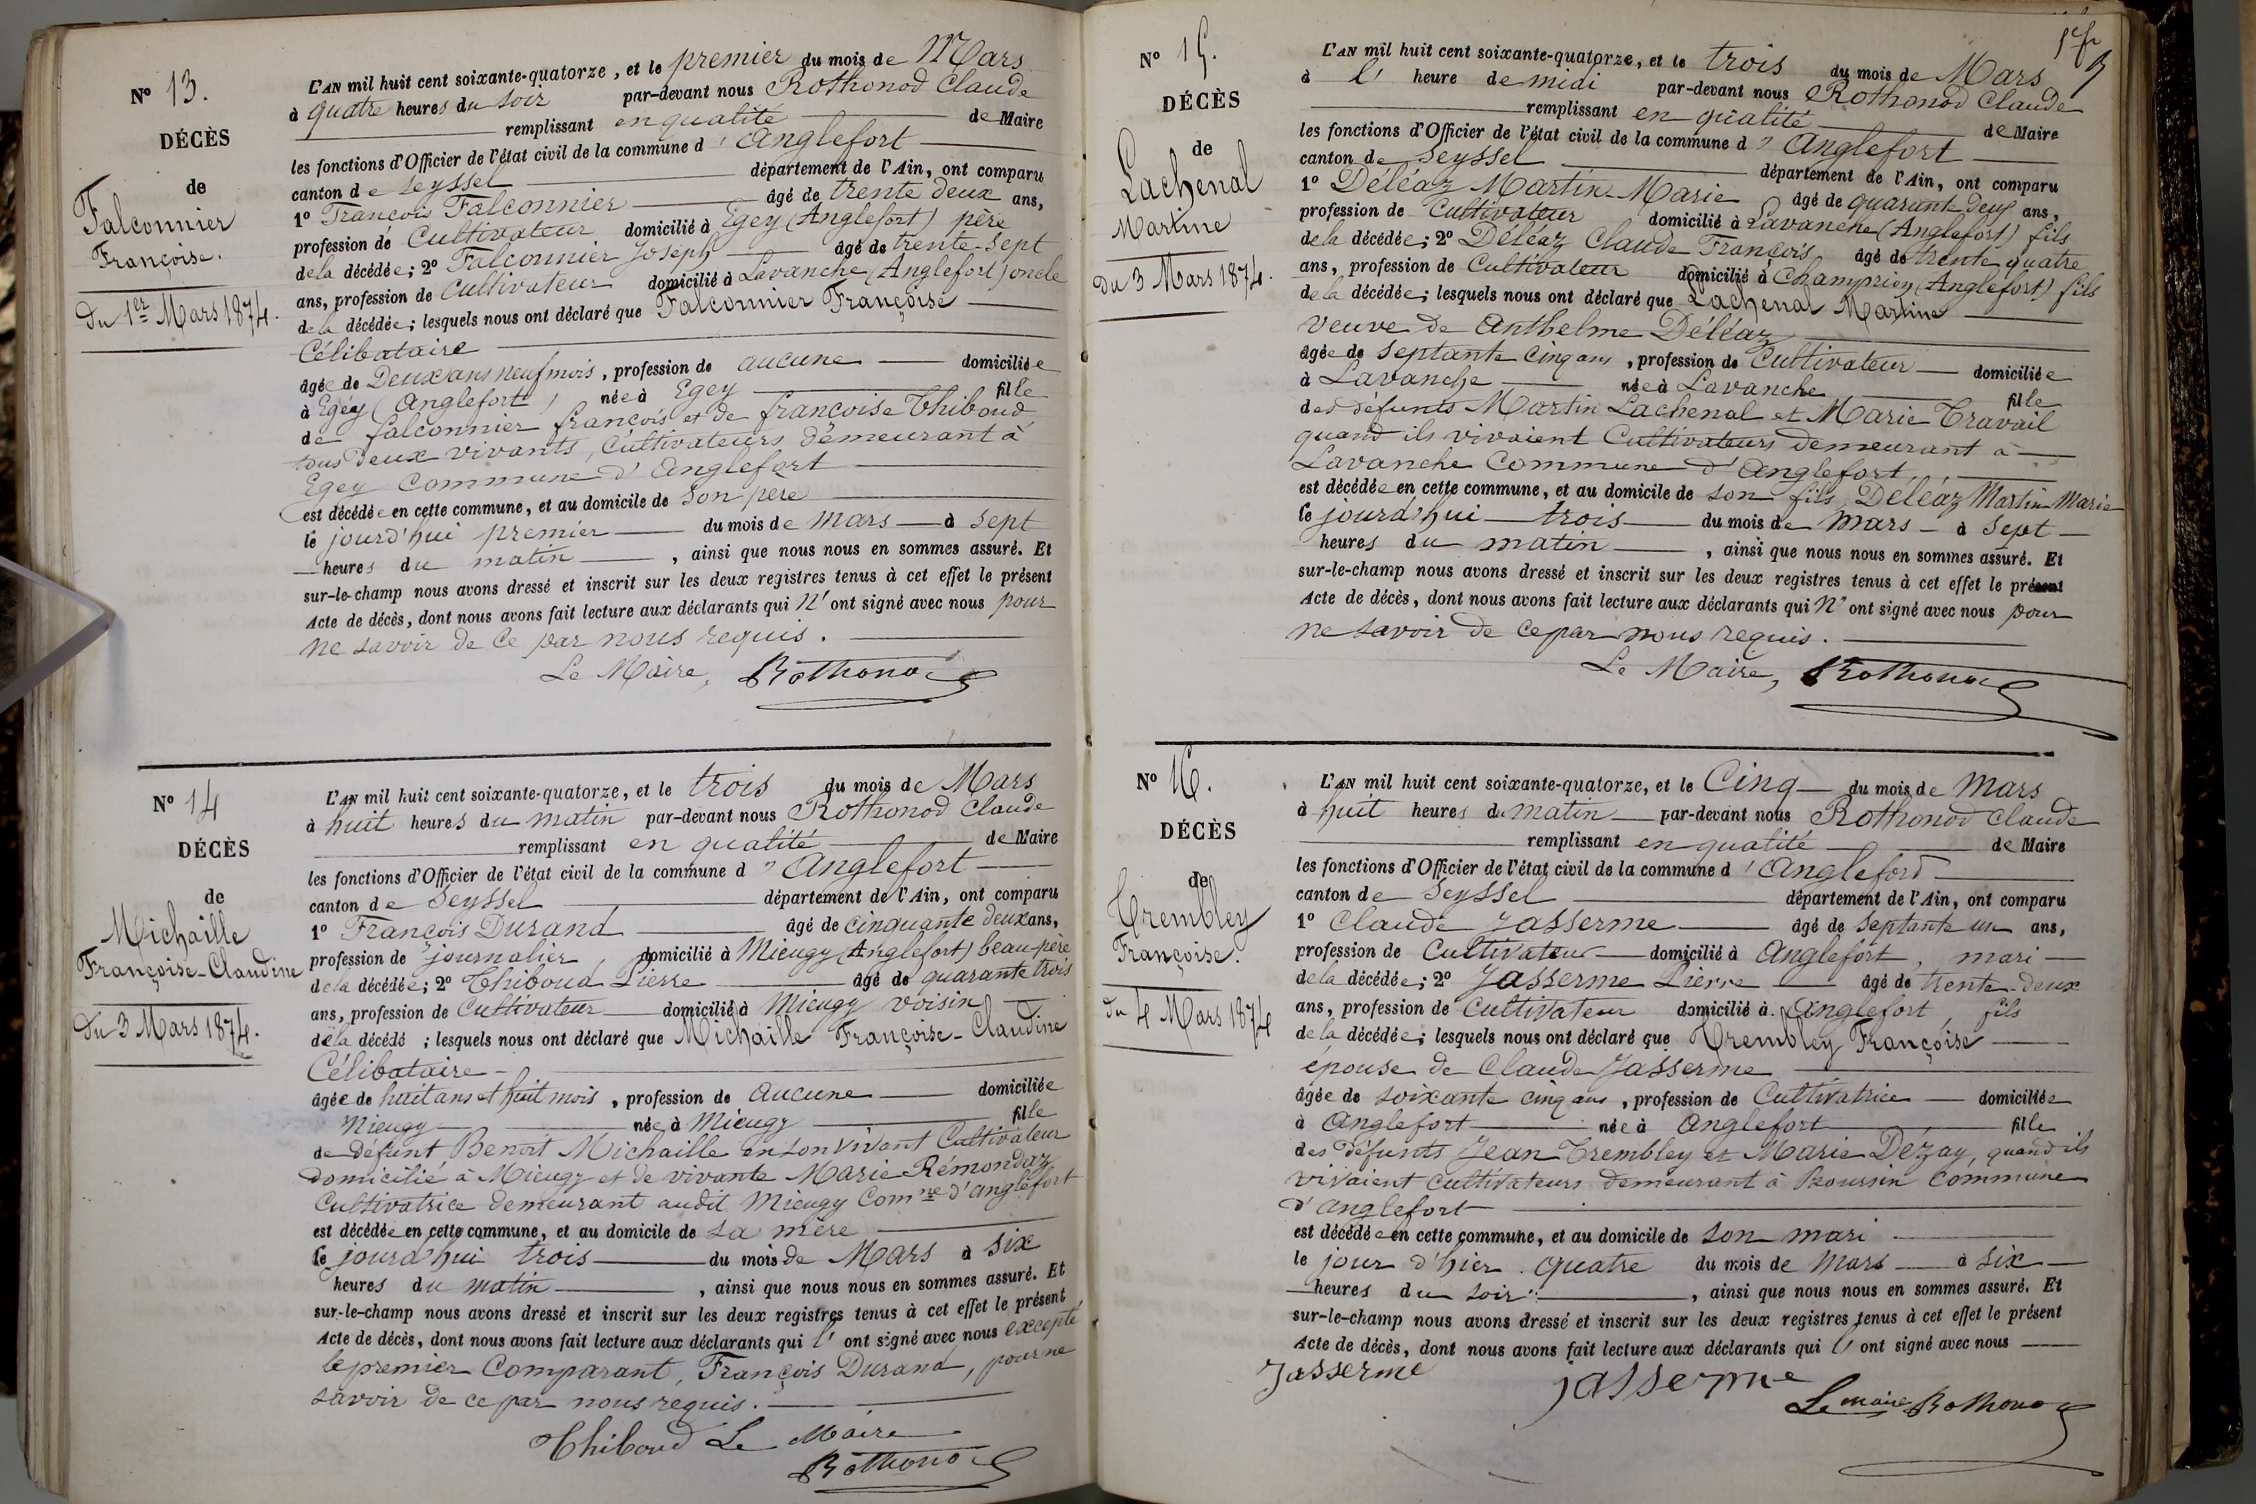 N° 13.
DÉCÈS
de
Falconnier
Françoise.
Du 1er Mars 1874.
L'AN mil huit cent soixante-quatorze, et le premier du mois de Mars
à quatre heures du soir par-devant nous Rothonod Claude
remplissant en qualité de Maire
les fonctions d'Officier de l'état civil de la commune d'Anglefort
canton de Seyssel département de l'Ain, ont comparu
1° François Falconnier âgé de trente deux ans,
profession de Cultivateur domicilié à Egey (Anglefort) père
de la décédée; 2° Falconnier Joseph âgé de trente-sept
ans, profession de Cultivateur domicilié à Lavanche (Anglefort) oncle
de la décédée; lesquels nous ont déclaré que Falconnier Françoise
Célibataire
âgée de Deux ans neuf mois, profession de aucune domiciliée
à Egey (Anglefort) née à Egey fille
de falconnier françois et de françoise Thiboud
tous deux vivants, Cultivateurs demeurant à
Egey Commune d'Anglefort
est décédée en cette commune, et au domicile de son père
le jourd'hui premier du mois de mars à sept
heures du matin, ainsi que nous nous en sommes assuré. Et
sur-le-champ nous avons dressé et inscrit sur les deux registres tenus à cet effet le présent
Acte de décès, dont nous avons fait lecture aux déclarants qui n'ont signé avec nous pour
ne savoir de ce par nous requis.
Le Maire, Rothonod
N° 14
DÉCÈS
de
Michaille
Françoise-Claudine
Du 3 Mars 1874.
L'AN mil huit cent soixante-quatorze, et le trois du mois de Mars
à huit heures du matin par-devant nous Rothonod Claude
remplissant en qualité de Maire
les fonctions d'Officier de l'état civil de la commune d'Anglefort
canton de Seyssel département de l'Ain, ont comparu
1° François Durand âgé de cinquante deux ans,
profession de journalier, domicilié à Mieugy (Anglefort) beau-père
de la décédée; 2° Thiboud Pierre âgé de quarante trois
ans, profession de Cultivateur domicilié à Mieugy voisin
de la décédé ; lesquels nous ont déclaré que Michaille Françoise-Claudine
Célibataire
âgée de huit ans et huit mois, profession de aucune domiciliée
Mieugy née à Mieugy fille
de défunt Benoît Michaille en son vivant Cultivateur
domicilié à Mieugy et de vivante Marie Rémondaz
Cultivatrice demeurant audit Mieugy Comne d'anglefort
est décédée en cette commune, et au domicile de sa mère
le jourd'hui trois du mois de Mars à six
heures du matin, ainsi que nous nous en sommes assuré. Et
sur-le-champ nous avons dressé et inscrit sur les deux registres tenus à cet effet le présent
Acte de décès, dont nous avons fait lecture aux déclarants qui l'ont signé avec nous excepté
le premier Comparant, François Durand, pour ne
savoir de ce par nous requis.
Thiboud Le Maire
Rothonod
N° 15.
DÉCÈS
de
Lachenal
Martine
Du 3 Mars 1874.
L'AN mil huit cent soixante-quatorze, et le trois du mois de Mars
à l' heure de midi par-devant nous Rothonod Claude
remplissant en qualité de Maire
les fonctions d'Officier de l'état civil de la commune d'Anglefort
canton de Seyssel département de l'Ain, ont comparu
1° Déléaz Martin-Marie âgé de quarante deux ans,
profession de Cultivateur domicilié à Lavanche (Anglefort) fils
de la décédée; 2° Déléaz Claude François âgé de trente quatre
ans, profession de Cultivateur domicilié à Champrion (Anglefort) fils
de la décédée; lesquels nous ont déclaré que Lachenal Martine
Veuve de Anthelme Déléaz
âgée de septante cinq ans, profession de Cultivateur domiciliée
à Lavanche née à Lavanche fille
des défunts Martin Lachenal et Marie Travail
quand ils vivaient Cultivateurs demeurant à
Lavanche Commune d'Anglefort,
est décédée en cette commune, et au domicile de son fils Déléaz Martin Marie
le jourd'hui trois du mois de mars à sept
heures du matin, ainsi que nous nous en sommes assuré. Et
sur-le-champ nous avons dressé et inscrit sur les deux registres tenus à cet effet le présent
Acte de décès, dont nous avons fait lecture aux déclarants qui n'ont signé avec nous pour
ne savoir de ce par nous requis.
Le Maire, Rothonod
N° 16.
DÉCÈS
de
Trembley
Françoise.
du 4 Mars 1874
L'AN mil huit cent soixante-quatorze, et le Cinq du mois de Mars
à huit heures du matin par-devant nous Rothonod Claude
remplissant en qualité de Maire
les fonctions d'Officier de l'état civil de la commune d'Angleford
canton de Seyssel département de l'Ain, ont comparu
1° Claude Jasserme âgé de septante un ans,
profession de Cultivateur domicilié à Anglefort, mari
de la décédée; 2° Jasserme Pierre âgé de trente-deux
ans, profession de Cultivateur domicilié à Anglefort, fils
de la décédée; lesquels nous ont déclaré que Trembley Françoise
épouse de Claude Jasserme
âgée de soixante cinq ans, profession de Cultivatrice domiciliée
à Anglefort née à Anglefort fille
des défunts Jean Trembley et Marie Dézay, quand ils
vivaient cultivateurs demeurant à Boursin Commune
d'Anglefort
est décédée en cette commune, et au domicile de son mari
le jour d'hier quatre du mois de Mars à six
heures du soir, ainsi que nous nous en sommes assuré. Et
sur-le-champ nous avons dressé et inscrit sur les deux registres tenus à cet effet le présent
Acte de décès, dont nous avons fait lecture aux déclarants qui l'ont signé avec nous
Jasserme jasserme
Le maire Rothonod